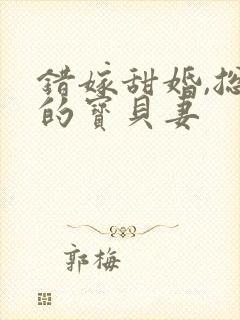 错嫁甜婚,总
的寶貝妻
郭梅